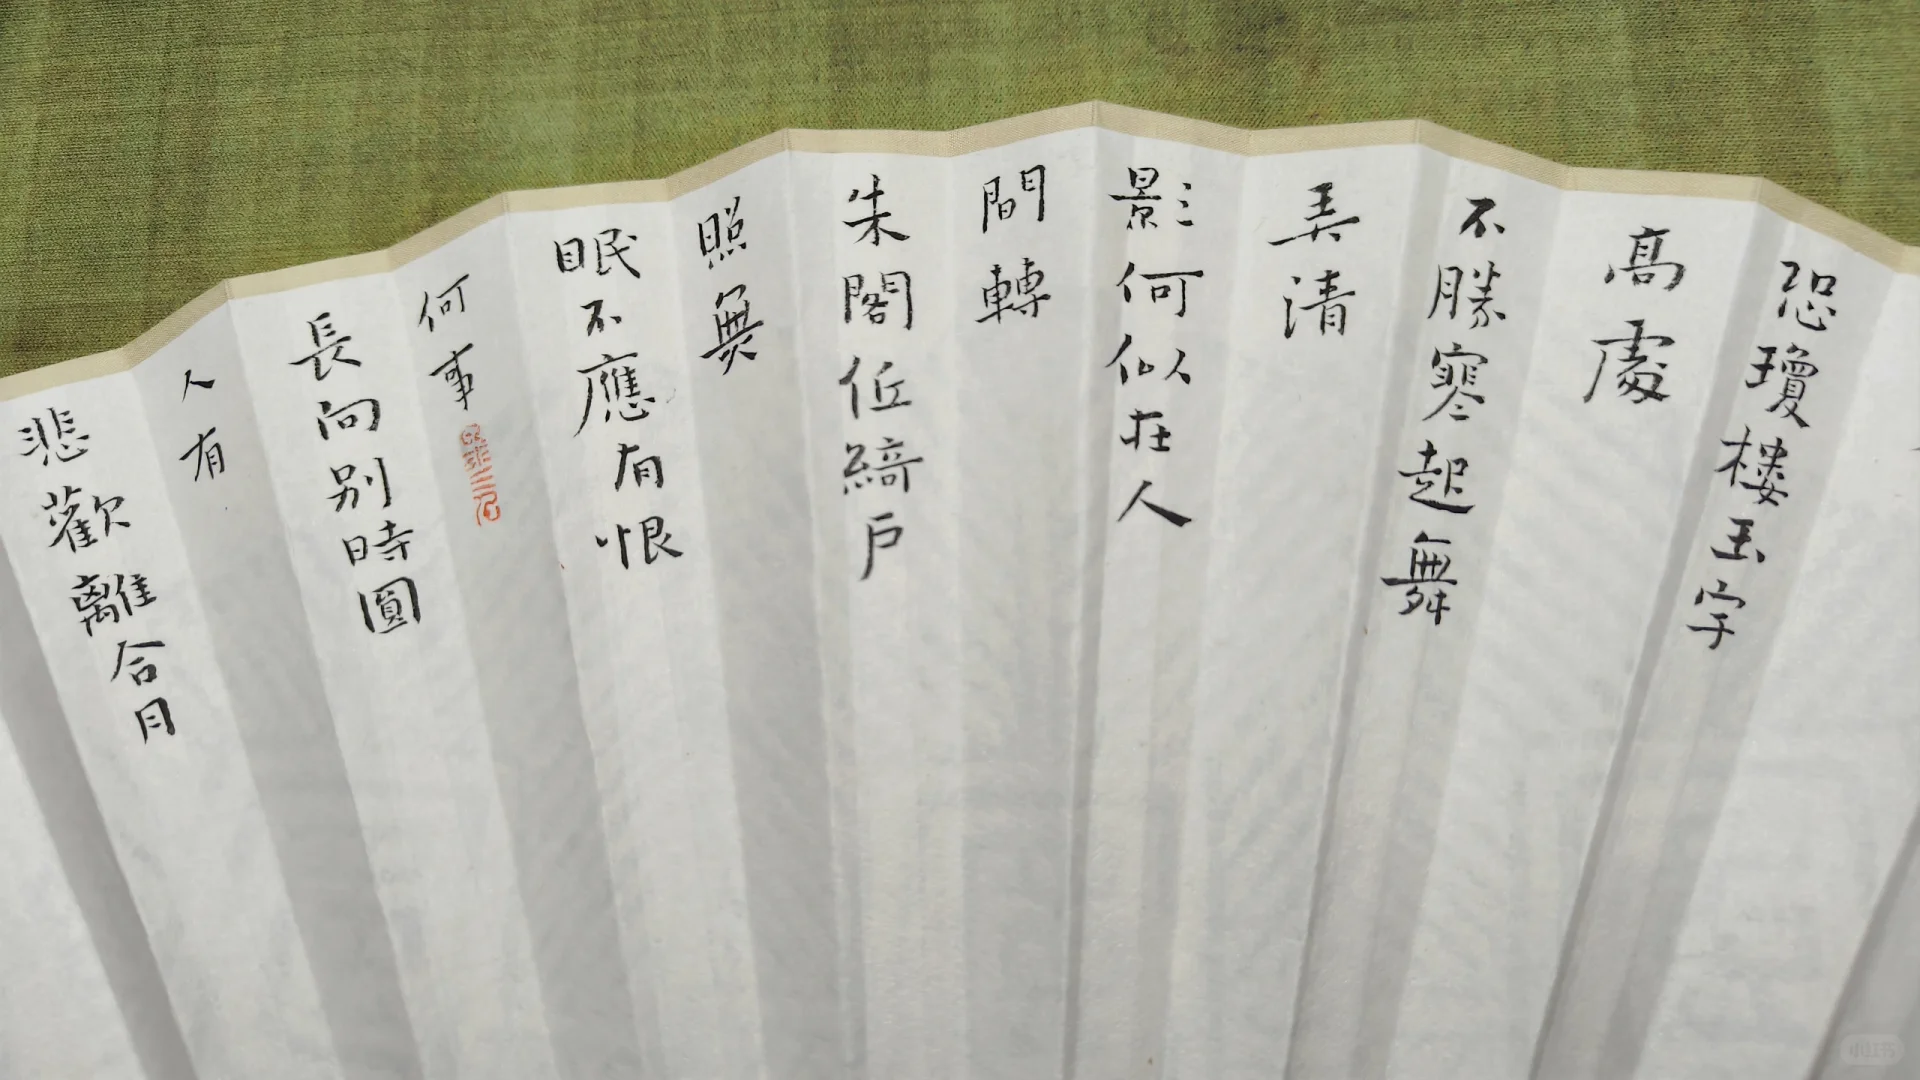 恐瓊樓玉宇
高處
不勝寒起舞
弄清
影何似在人
間轉
朱閣低綺戶
照無
眠不應有恨
何事
長向别時圓
人有
悲歡離合月
小红书